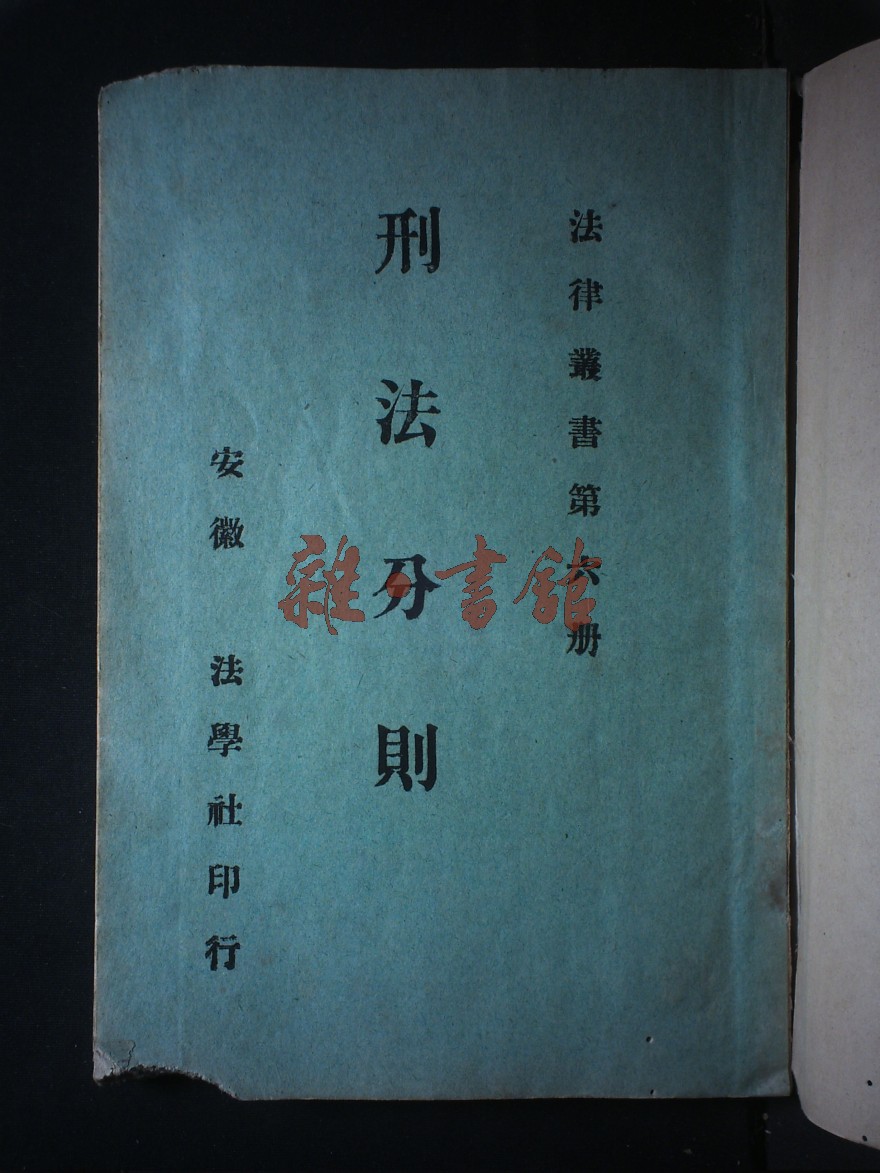 法律叢書第六册
刑法分則
安徽 法學社印行
雜·書館